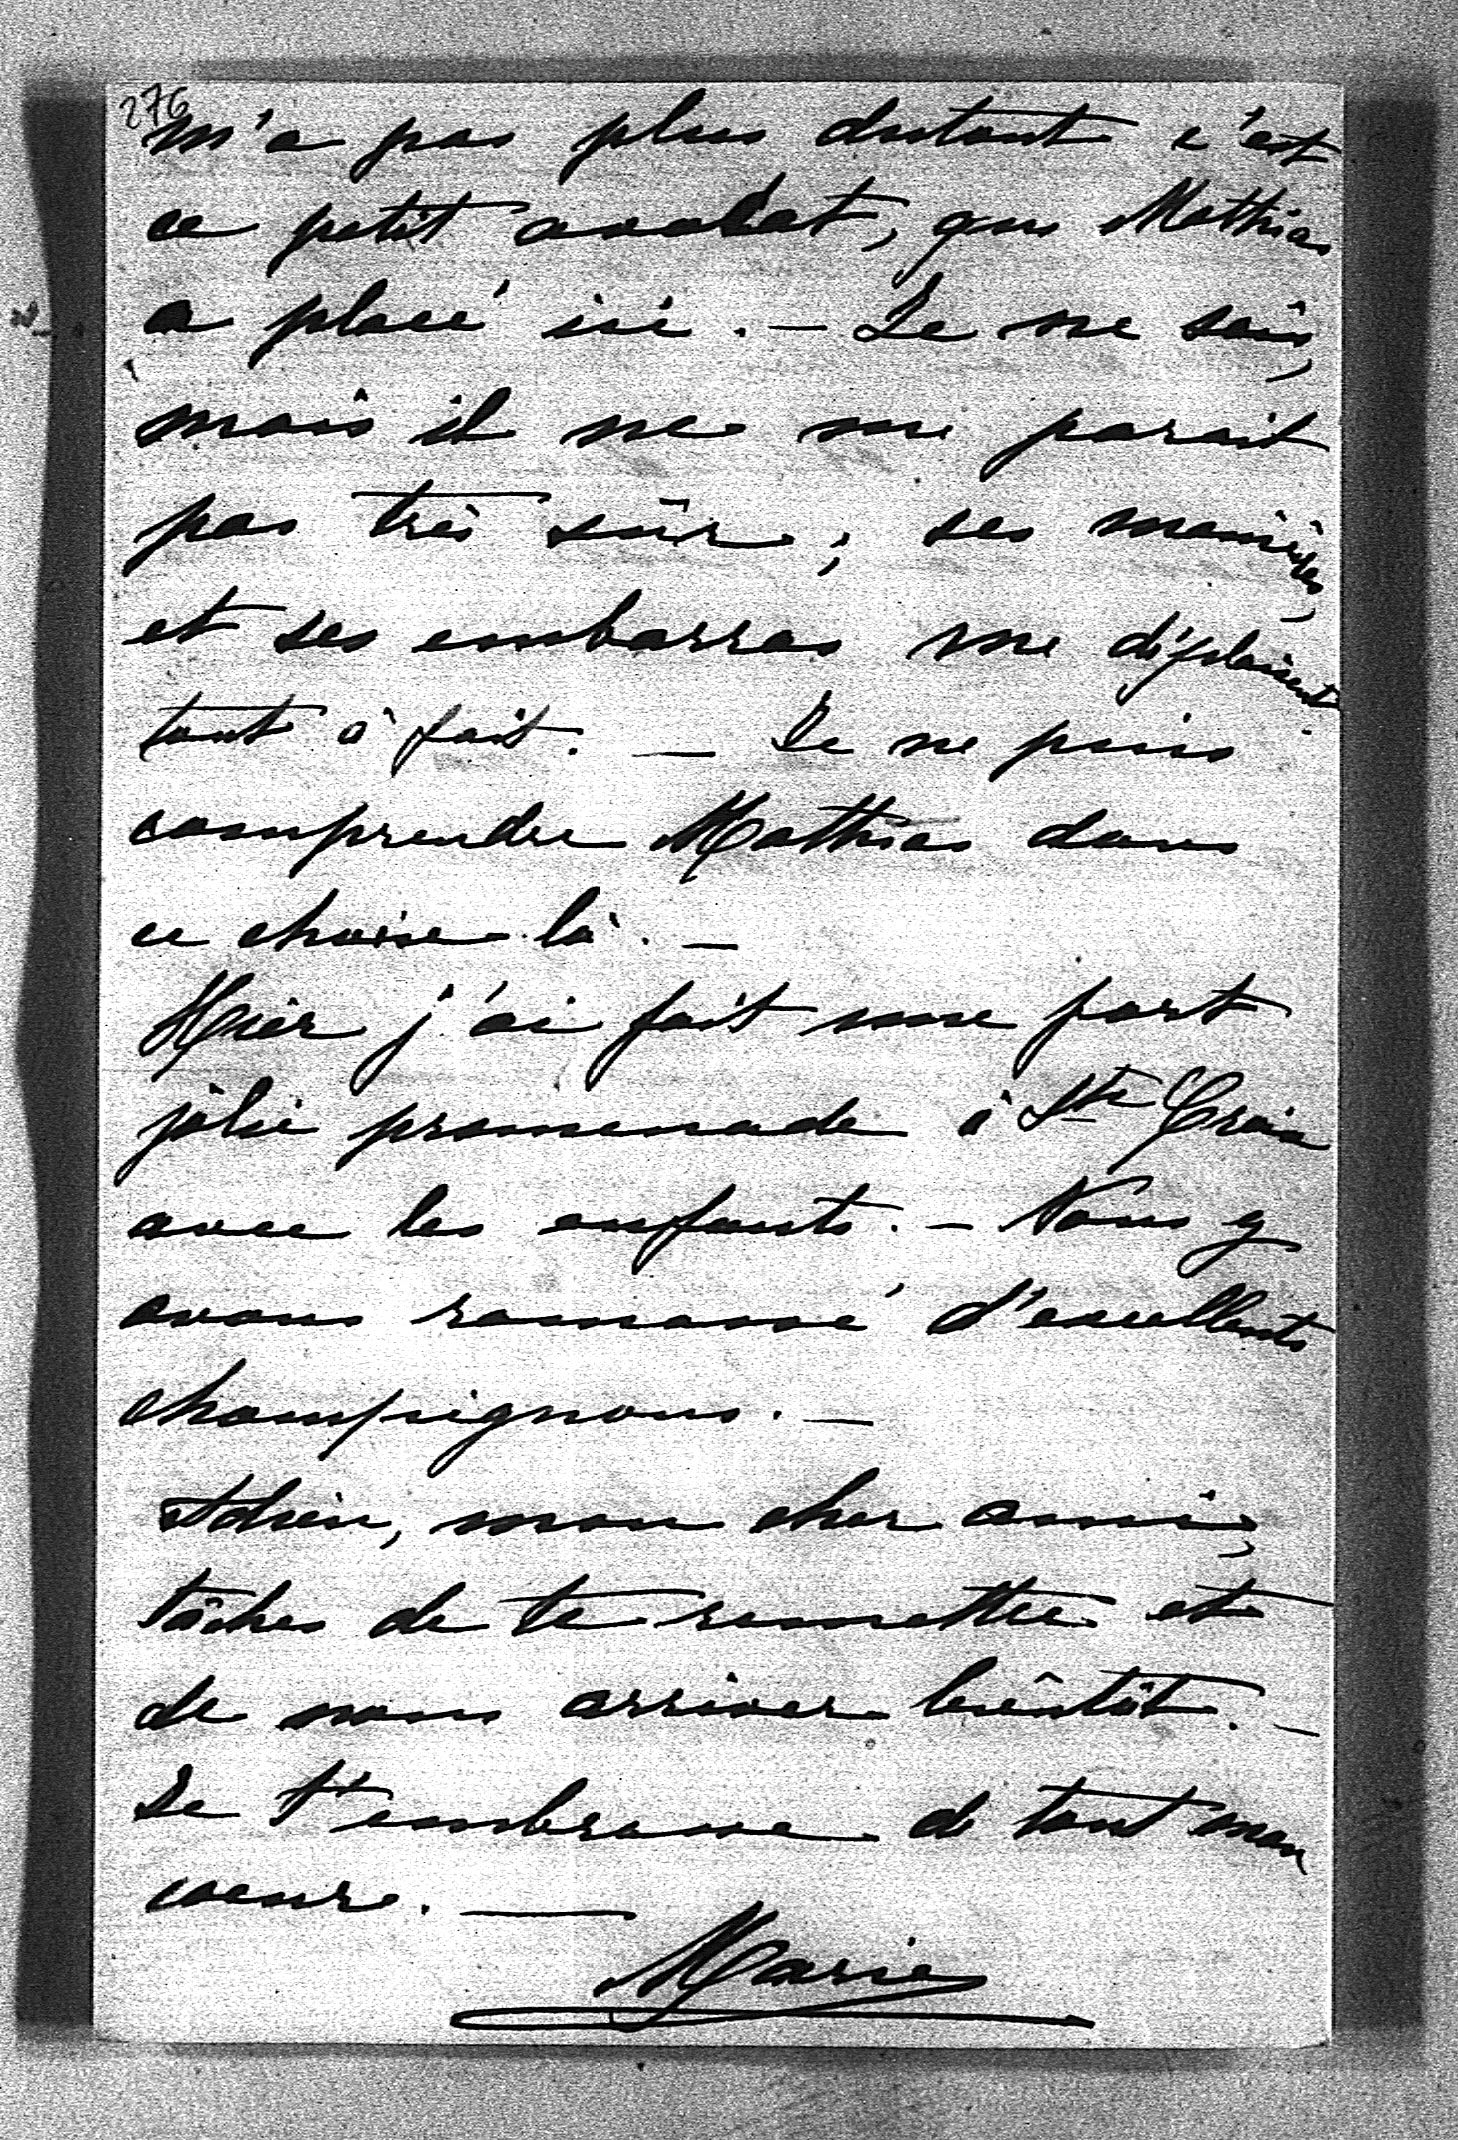 276
m'a pas plus dutout c'est
ce petit avocat, que Mathias
a placé ici. — Je ne sais,
mais il ne me parait
pas très sûr; ses manières,
et ses embarras me déplaisent
tout à fait. — Je ne puis
comprendre Mathias dans
ce choise là. —
Hier j'ai fait une fort
jolie promenade à Ste Croix
avec les enfants. — Nous y
avons ramassé d'excellents
champignons. —
Adieu, mon cher ami,
tâches de te remettre et
de nous arriver bientôt. —
Je t'embrasse de tout mon
coeur. —
Marie